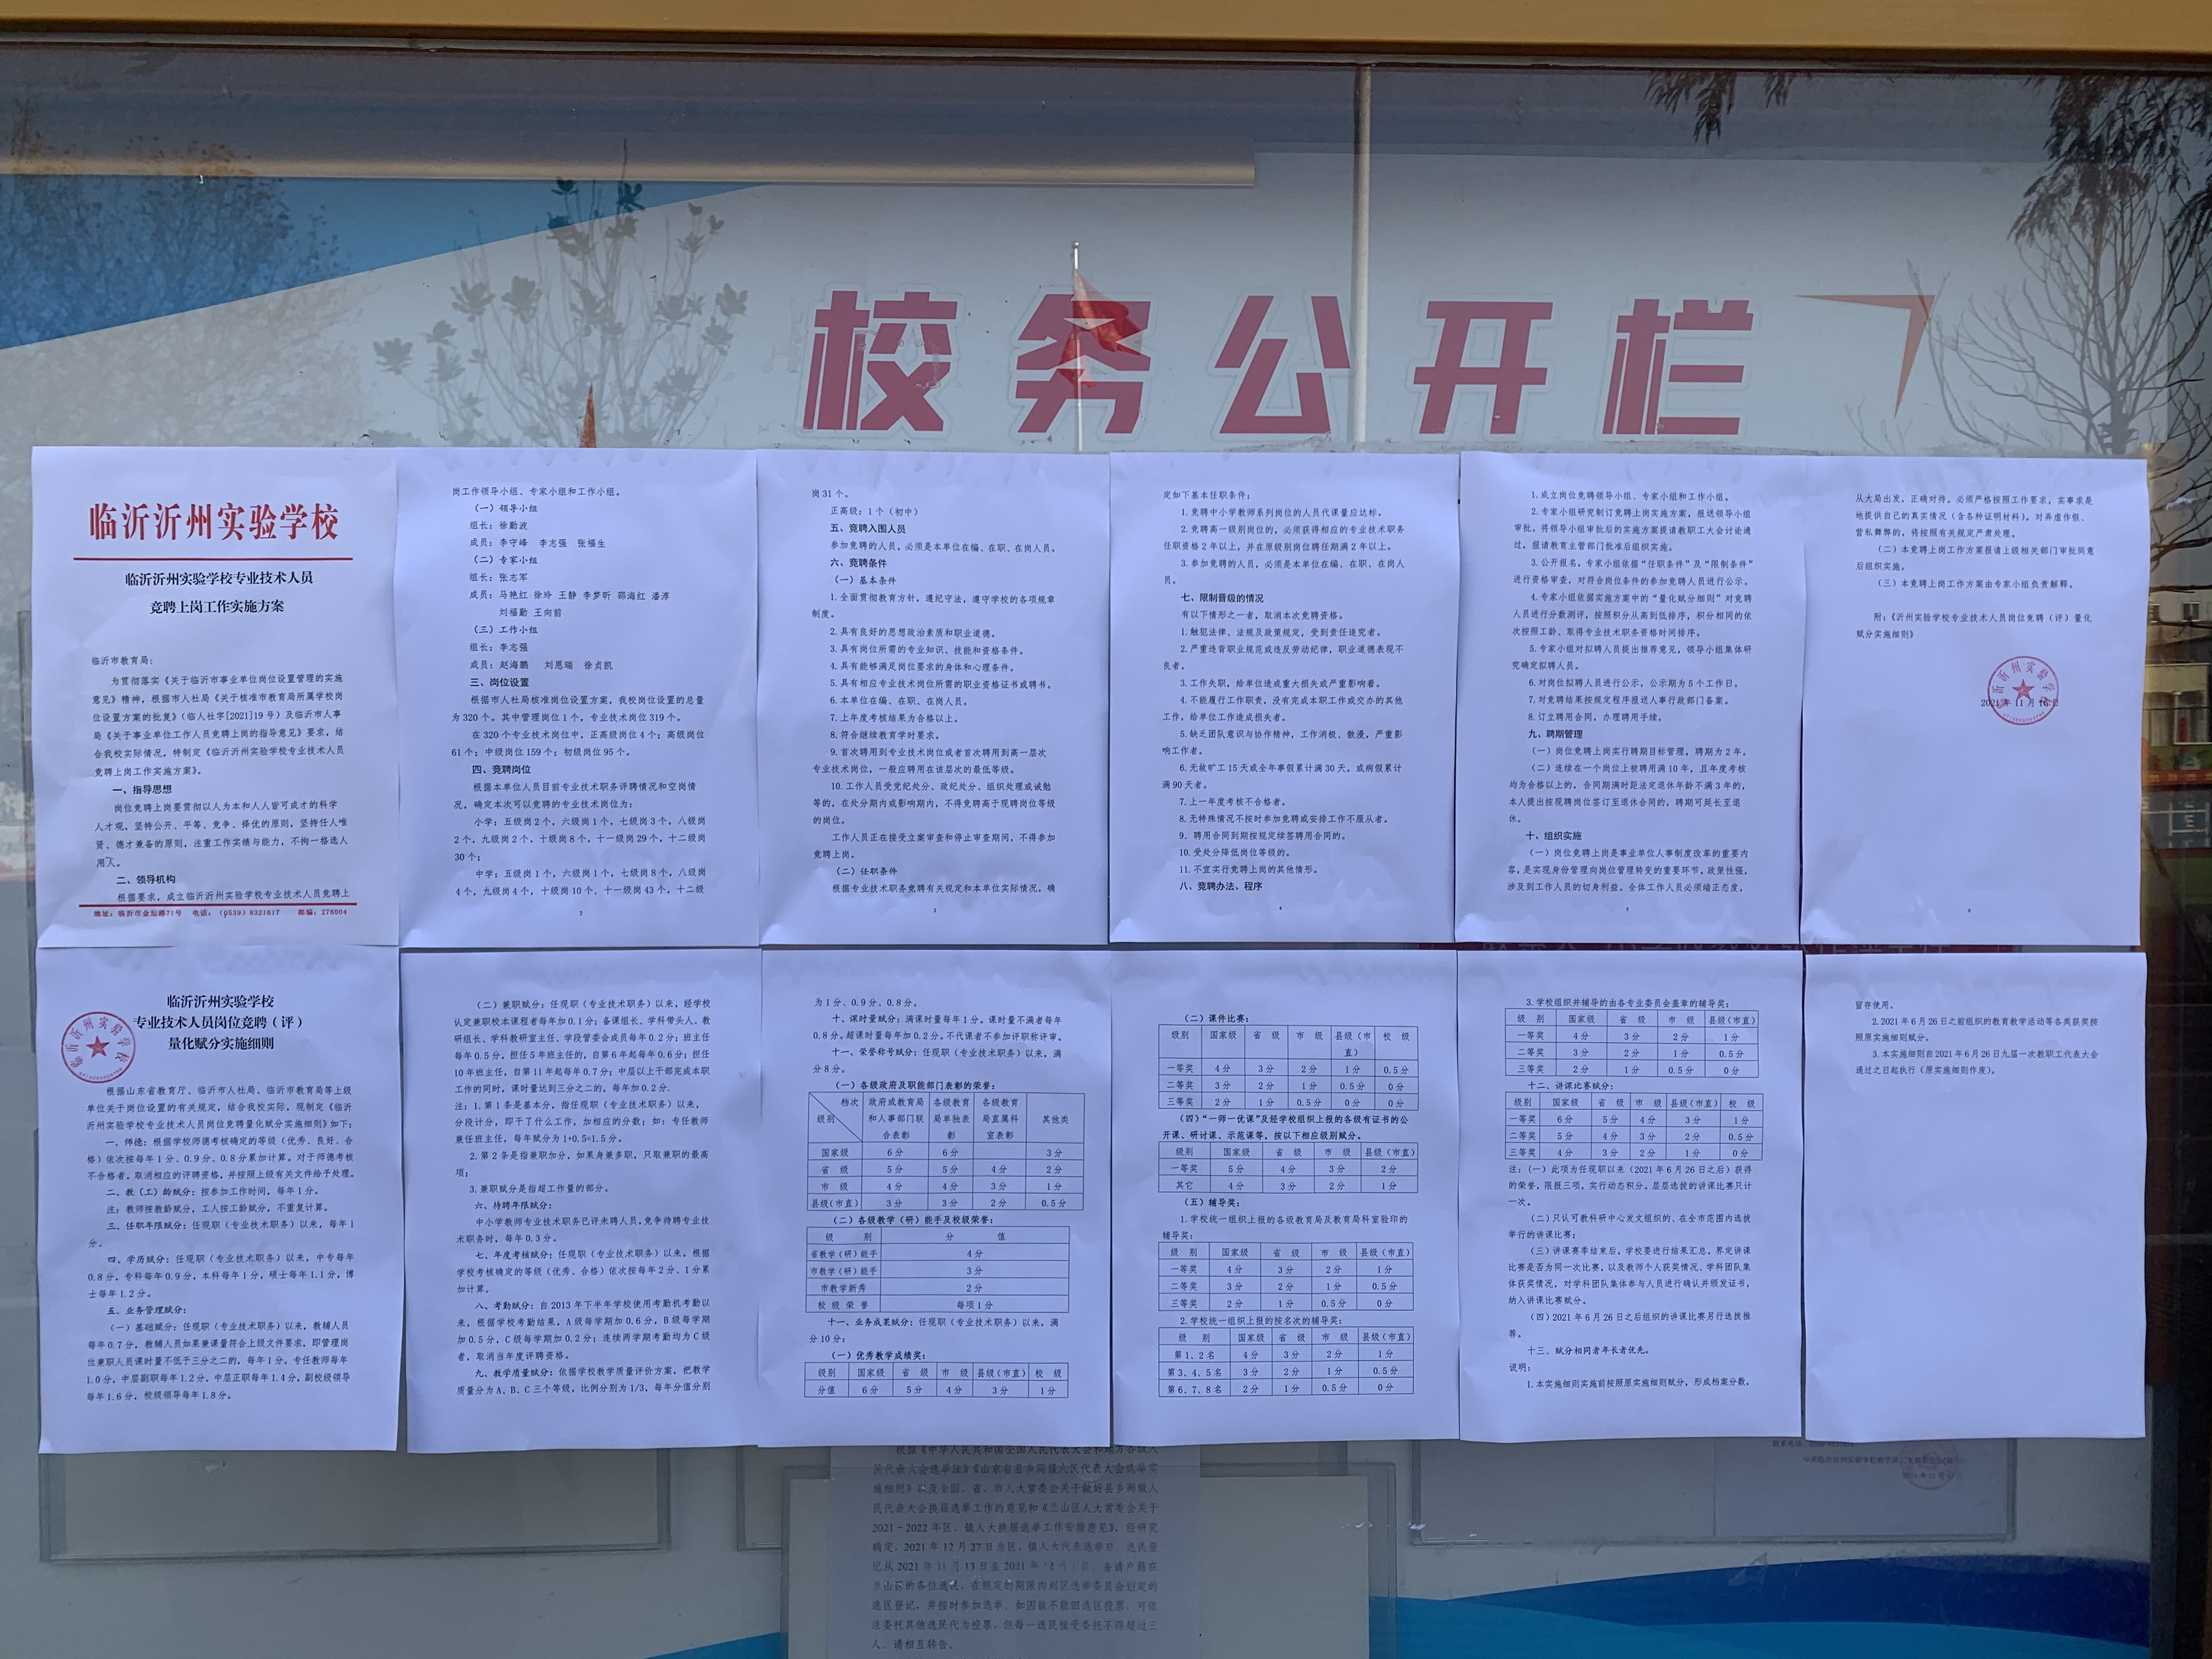 校务公开栏
临沂沂州实验学校
临沂沂州实验学校专业技术人员
竞聘上岗工作实施方案
临沂市教育局：
为贯彻落实《关于临沂市事业单位岗位设置管理的实施
意见》精神，根据市人社局《关于核准市教育局所属学校岗
位设置方案的批复》（临人社字[2021]19号）及临沂市人事
局《关于事业单位工作人员竞聘上岗的指导意见》要求，结
合我校实际情况，特制定《临沂沂州实验学校专业技术人员
竞聘上岗工作实施方案》。
一、指导思想
岗位竞聘上岗要贯彻以人为本和人人皆可成才的科学
人才观，坚持公开、平等、竞争、择优的原则，坚持任人唯
贤、德才兼备的原则，注重工作实绩与能力，不拘一格选人
用人。
二、领导机构
根据要求，成立临沂沂州实验学校专业技术人员竞聘上
地址：临沂市金坛路71号 电话：（0539）8321617 邮编：276004
岗工作领导小组、专家小组和工作小组。
（一）领导小组
组长：徐勤波
成员：李守峰 李志强 张福生
（二）专家小组
组长：张志军
成员：马艳红 徐玲 王静 李梦昕 邵海红 潘淳
刘福勤 王向前
（三）工作小组
组长：李志强
成员：赵海鹏 刘恩瑞 徐贞凯
三、岗位设置
根据市人社局核准岗位设置方案，我校岗位设置的总量
为320个。其中管理岗位1个，专业技术岗位319个。
在320个专业技术岗位中，正高级岗位4个；高级岗位
61个；中级岗位159个；初级岗位95个。
四、竞聘岗位
根据本单位人员目前专业技术职务评聘情况和空岗情
况，确定本次可以竞聘的专业技术岗位为：
小学：五级岗2个，六级岗1个，七级岗3个，八级岗
2个，九级岗2个，十级岗8个，十一级岗29个，十二级岗
30个；
中学：五级岗1个，六级岗1个，七级岗8个，八级岗
4个，九级岗4个，十级岗10个，十一级岗43个，十二级
2
岗31个。
正高级：1个（初中）
五、竞聘入围人员
参加竞聘的人员，必须是本单位在编、在职、在岗人员。
六、竞聘条件
（一）基本条件
1.全面贯彻教育方针，遵纪守法，遵守学校的各项规章
制度。
2.具有良好的思想政治素质和职业道德。
3.具有岗位所需的专业知识、技能和资格条件。
4.具有能够满足岗位要求的身体和心理条件。
5.具有相应专业技术岗位所需的职业资格证书或聘书。
6.本单位在编、在职、在岗人员。
7.上年度考核结果为合格以上。
8.符合继续教育学时要求。
9.首次聘用到专业技术岗位或者首次聘用到高一层次
专业技术岗位，一般应聘用在该层次的最低等级。
10.工作人员受党纪处分、政纪处分、组织处理或诫勉
等的，在处分期内或影响期内，不得竞聘高于现聘岗位等级
的岗位。
工作人员正在接受立案审查和停止审查期间，不得参加
竞聘上岗。
（二）任职条件
根据专业技术职务竞聘有关规定和本单位实际情况，确
3
定如下基本任职条件：
1.竞聘中小学教师系列岗位的人员代课量应达标。
2.竞聘高一级别岗位的，必须获得相应的专业技术职务
任职资格2年以上，并在原级别岗位聘任期满2年以上。
3.参加竞聘的人员，必须是本单位在编、在职、在岗人
员。
七、限制晋级的情况
有以下情形之一者，取消本次竞聘资格。
1.触犯法律、法规及政策规定，受到责任追究者。
2.严重违背职业规范或违反劳动纪律，职业道德表现不
良者。
3.工作失职，给单位造成重大损失或严重影响着。
4.不能履行工作职责，没有完成本职工作或交办的其他
工作，给单位工作造成损失者。
5.缺乏团队意识与协作精神，工作消极、散漫，严重影
响工作者。
6.无故旷工15天或全年事假累计满30天，或病假累计
满90天者。
7.上一年度考核不合格者。
8.无特殊情况不按时参加竞聘或安排工作不服从者。
9.聘用合同到期按规定续签聘用合同的。
10.受处分降低岗位等级的。
11.不宜实行竞聘上岗的其他情形。
八、竞聘办法、程序
4
1.成立岗位竞聘领导小组、专家小组和工作小组。
2.专家小组研究制订竞聘上岗实施方案，报送领导小组
审批。将领导小组审批后的实施方案提请教职工大会讨论通
过，报请教育主管部门批准后组织实施。
3.公开报名，专家小组依据“任职条件”及“限制条件”
进行资格审查，对符合岗位条件的参加竞聘人员进行公示。
4.专家小组依据实施方案中的“量化赋分细则”对竞聘
人员进行分数测评，按照积分从高到低排序，积分相同的依
次按照工龄、取得专业技术职务资格时间排序。
5.专家小组对拟聘人员提出推荐意见，领导小组集体研
究确定拟聘人员。
6.对岗位拟聘人员进行公示，公示期为5个工作日。
7.对竞聘结果按规定程序报送人事行政部门备案。
8.订立聘用合同，办理聘用手续。
九、聘期管理
（一）岗位竞聘上岗实行聘期目标管理，聘期为2年。
（二）连续在一个岗位上被聘用满10年，且年度考核
均为合格以上的，合同期满时距法定退休年龄不满3年的，
本人提出按现聘岗位签订至退休合同的，聘期可延长至退
休。
十、组织实施
（一）岗位竞聘上岗是事业单位人事制度改革的重要内
容，是实现身份管理向岗位管理转变的重要环节，政策性强，
涉及到工作人员的切身利益。全体工作人员必须端正态度，
5
从大局出发，正确对待。必须严格按照工作要求，实事求是
地提供自己的真实情况（含各种证明材料）。对弄虚作假、
营私舞弊的，将按照有关规定严肃处理。
（二）本竞聘上岗工作方案报请上级相关部门审批同意
后组织实施。
（三）本竞聘上岗工作方案由专家小组负责解释。
附：《沂州实验学校专业技术人员岗位竞聘（评）量化
赋分实施细则》
2021年11月16日
6
临沂沂州实验学校
专业技术人员岗位竞聘（评）
量化赋分实施细则
根据山东省教育厅、临沂市人社局、临沂市教育局等上级
单位关于岗位设置的有关规定，结合我校实际，现制定《临沂
沂州实验学校专业技术人员岗位竞聘量化赋分实施细则》如下：
一、师德：根据学校师德考核确定的等级（优秀、良好、合
格）依次按每年1分、0.9分、0.8分累加计算。对于师德考核
不合格者，取消相应的评聘资格，并按照上级有关文件给予处理。
二、教（工）龄赋分：按参加工作时间，每年1分。
注：教师按教龄赋分，工人按工龄赋分，不重复计算。
三、任职年限赋分：任现职（专业技术职务）以来，每年1
分。
四、学历赋分：任现职（专业技术职务）以来，中专每年
0.8分，专科每年0.9分，本科每年1分，硕士每年1.1分，博
士每年1.2分。
五、业务管理赋分：
（一）基础赋分：任现职（专业技术职务）以来，教辅人员
每年0.7分，教辅人员如果兼课量符合上级文件要求，即管理岗
位兼职人员课时量不低于三分之二的，每年1分。专任教师每年
1.0分，中层副职每年1.2分，中层正职每年1.4分，副校级领导
每年1.6分，校级领导每年1.8分。
（二）兼职赋分：任现职（专业技术职务）以来，经学校
认定兼职校本课程者每年加0.1分；备课组长、学科带头人、教
研组长、学科教研室主任、学段管委会成员每年0.2分；班主任
每年0.5分，担任5年班主任的，自第6年起每年0.6分；担任
10年班主任，自第11年起每年0.7分；中层以上干部完成本职
工作的同时，课时量达到三分之二的，每年加0.2分。
注：1.第1条是基本分，指任现职（专业技术职务）以来，
分段计分，即干了什么工作，加相应的分数；如：专任教师
兼任班主任，每年赋分为1+0.5=1.5分。
2.第2条是指兼职加分，如果身兼多职，只取兼职的最高
项；
3.兼职赋分是指超工作量的部分。
六、待聘年限赋分：
中小学教师专业技术职务已评未聘人员，竞争待聘专业技
术职务时，每年0.3分。
七、年度考核赋分：任现职（专业技术职务）以来，根据
学校考核确定的等级（优秀、合格）依次按每年2分、1分累
加计算。
八、考勤赋分：自2013年下半年学校使用考勤机考勤以
来，根据学校考勤结果，A级每学期加0.6分，B级每学期
加0.5分，C级每学期加0.2分；连续两学期考勤均为C级
者，取消当年度评聘资格。
九、教学质量赋分：依据学校教学质量评价方案，把教学
质量分为A、B、C三个等级，比例分别为1/3，每年分值分别
为1分、0.9分、0.8分。
十、课时量赋分：满课时量每年1分。课时量不满者每年
0.8分。超课时量每年加0.2分。不代课者不参加评职称评审。
十一、荣誉称号赋分：任现职（专业技术职务）以来，满
分8分。
（一）各级政府及职能部门表彰的荣誉：
档次 级别 政府或教育局和人事部门联合表彰 各级教育局单独表彰 各级教育局直属科室表彰 其他类
国家级 6分 6分 3分
省 级 5分 5分 4分 2分
市 级 4分 4分 3分 1分
县级（市直） 3分 3分 2分 0.5分
（二）各级教学（研）能手及校级荣誉：
级 别 分 值
省教学（研）能手 4分
市教学（研）能手 3分
市教学新秀 2分
校级荣誉 每项1分
十一、业务成果赋分：任现职（专业技术职务）以来，满
分10分：
（一）优秀教学成绩奖：
级别 国家级 省 级 市 级 县级（市直） 校 级
分值 6分 5分 4分 3分 1分
（二）课件比赛：
级别 国家级 省 级 市 级 县级（市直） 校 级
一等奖 4分 3分 2分 1分 0.5分
二等奖 3分 2分 1分 0.5分 0分
三等奖 2分 1分 0.5分 0分 0分
（四）“一师一优课”及经学校组织上报的各级有证书的公
开课、研讨课、示范课等，按以下相应级别赋分。
级 别 国家级 省 级 市 级 县级（市直）
一等奖 5分 4分 3分 2分
其它 4分 3分 2分 1分
（五）辅导奖：
1.学校统一组织上报的各级教育局及教育局科室验印的
辅导奖：
级 别 国家级 省 级 市 级 县级（市直）
一等奖 4分 3分 2分 1分
二等奖 3分 2分 1分 0.5分
三等奖 2分 1分 0.5分 0分
2.学校统一组织上报的按名次的辅导奖：
级 别 国家级 省 级 市 级 县级（市直）
第1、2名 4分 3分 2分 1分
第3、4、5名 3分 2分 1分 0.5分
第6、7、8名 2分 1分 0.5分 0分
3.学校组织并辅导的由各专业委员会盖章的辅导奖：
级 别 国家级 省 级 市 级 县级（市直）
一等奖 4分 3分 2分 1分
二等奖 3分 2分 1分 0.5分
三等奖 2分 1分 0.5分 0分
十二、讲课比赛赋分：
级 别 国家级 省 级 市 级 县级（市直） 校 级
一等奖 6分 5分 4分 3分 1分
二等奖 5分 4分 3分 2分 0.5分
三等奖 4分 3分 2分 1分 0分
注：（一）此项为任现职以来（2021年6月26日之后）获得
的荣誉，限报三项，实行动态积分。层层选拔的讲课比赛只计
一次。
（二）只认可教科研中心发文组织的、在全市范围内选拔
举行的讲课比赛；
（三）讲课赛季结束后，学校要进行结果汇总，界定讲课
比赛是否为同一次比赛，以及教师个人获奖情况、学科团队集
体获奖情况，对学科团队集体参与人员进行确认并颁发证书，
纳入讲课比赛赋分。
（四）2021年6月26日之后组织的讲课比赛另行选拔推
荐。
十三、赋分相同者年长者优先。
说明：
1.本实施细则实施前按照原实施细则赋分，形成档案分数，
留存使用。
2.2021年6月26日之前组织的教育教学活动等各类获奖按
照原实施细则赋分。
3.本实施细则自2021年6月26日九届一次教职工代表大会
通过之日起执行（原实施细则作废）。
根据《中华人民共和国全国人民代表大会和地方各级人
民代表大会选举法》《山东省县乡两级人民代表大会选举实
施细则》以及全国、省、市人大常委会关于做好县乡两级人
民代表大会换届选举工作的意见和《兰山区人大常委会关于
2021-2022年区、镇人大换届选举工作安排意见》，经研究
确定，2021年12月27日为区、镇人大代表选举日。选民登
记从2021年11月13日至2021年12月 日。务请户籍在
兰山区的各位选民，在规定时期限内到区选举委员会划定的
选区登记，并按时参加选举。如因故不能回选区投票，可依
法委托其他选民代为投票，但每一选民接受委托不得超过三
人。请相互转告。